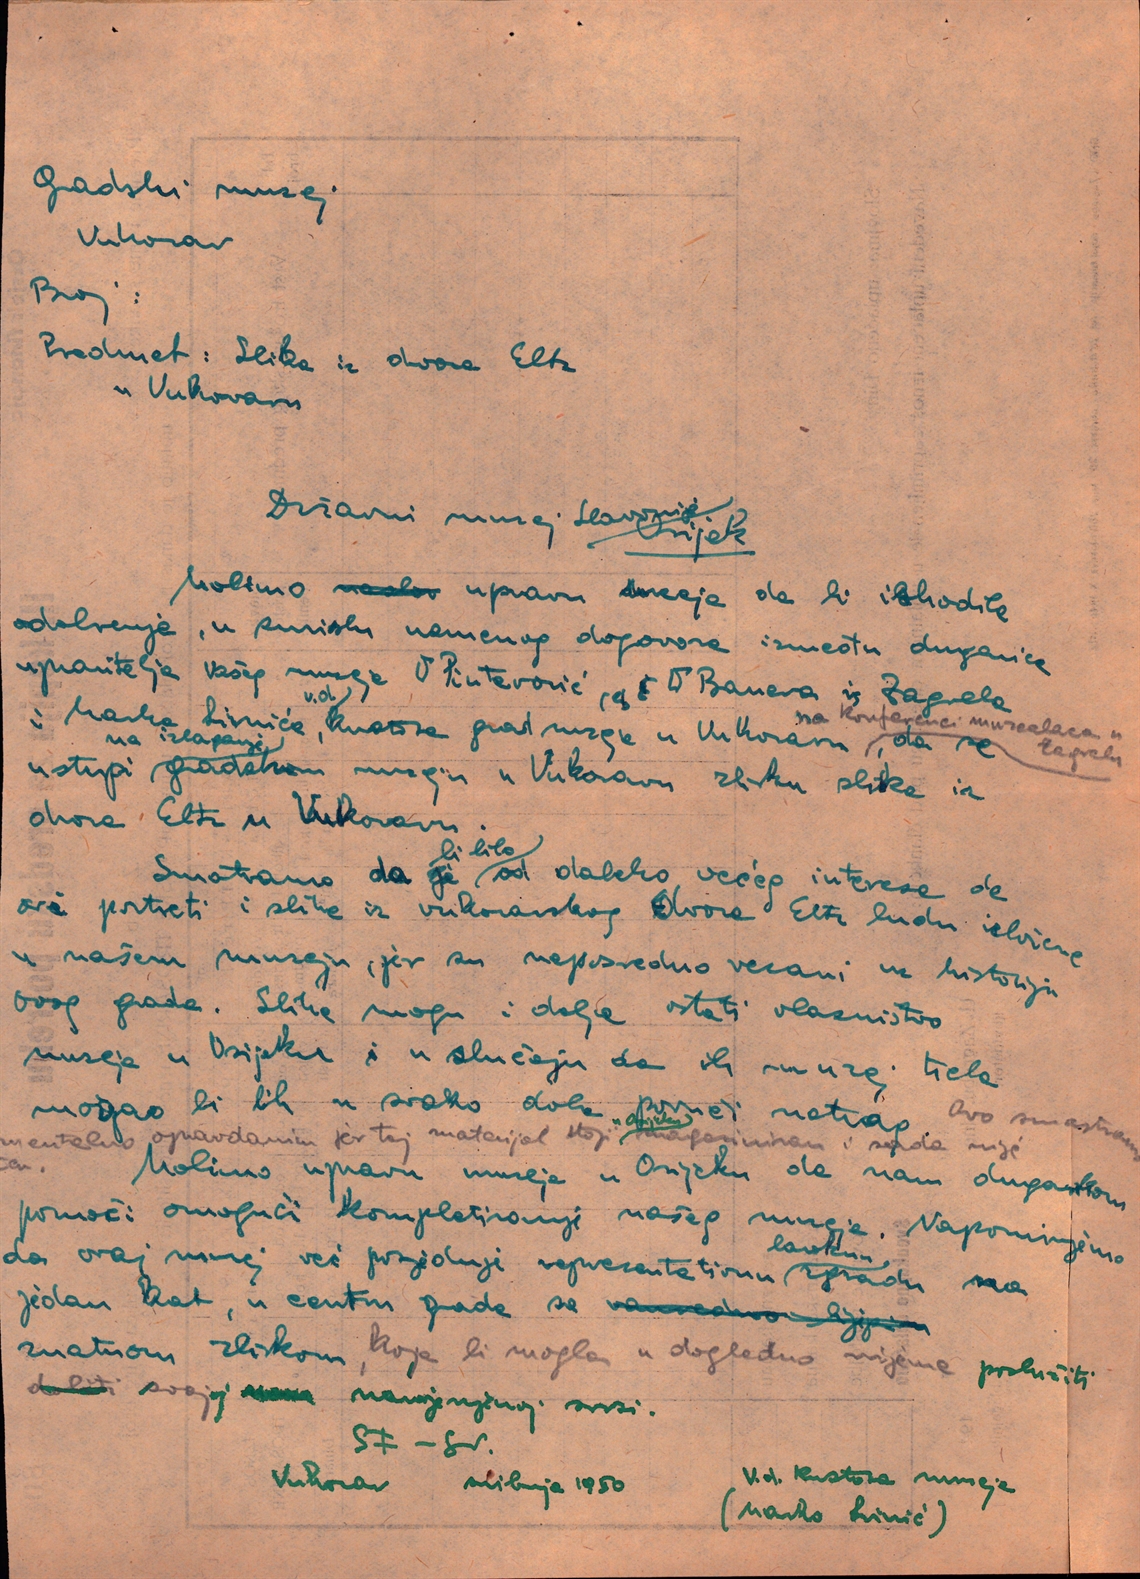 Gradski muzej
Vukovar
Broj :
Predmet : Slike iz dvora Eltz
u Vukovaru
Državni muzej Slavonije
Osijek
Molimo naslov upravu muzeja da bi ishodila
odobrenje, u smislu usmenog dogovora između drugarice
upravitelja vašeg muzeja D Pinterović, D Bauera iz Zagreba
v.d.
i Marka Livnića, kustosa grad muzeja u Vukovaru, da se
na konferenci muzealaca u Zagrebu
na izlaganje
ustupi gradskom muzeju u Vukovaru zbirku slika iz
dvora Eltz u Vukovaru.
bi bilo
Smatramo da je od daleko većeg interesa da
ovi portreti i slike iz vukovarskog dvora Eltz budu izložene
u našem muzeju, jer su neposredno vezani uz historiju
ovog grada. Slike mogu i dalje ostati vlasništvo
muzeja u Osijeku i u slučaju da ih muzej treba
mogao bi ih u svako doba povući natrag. Ovo smatramo
u Osijeku
mentalno opravdanim jer taj materijal stoji magaziniran i sada nije
Molimo upravu muzeja u Osijeku da nam drugarskom
pomoći omogući kompletiranje našeg muzeja. Napominjemo
da ovaj muzej već posjeduje reprezentativnu zgradu na
baroknu
jedan kat, u centru grada sa vanredno lijepim
znatnom zbirkom, koja bi mogla u dogledno vrijeme poslužiti
dobiti svojoj namijenjenoj svrsi.
SF – SN.
Vukovar svibnja 1950
V.d. kustosa muzeja
(Marko Livnić)